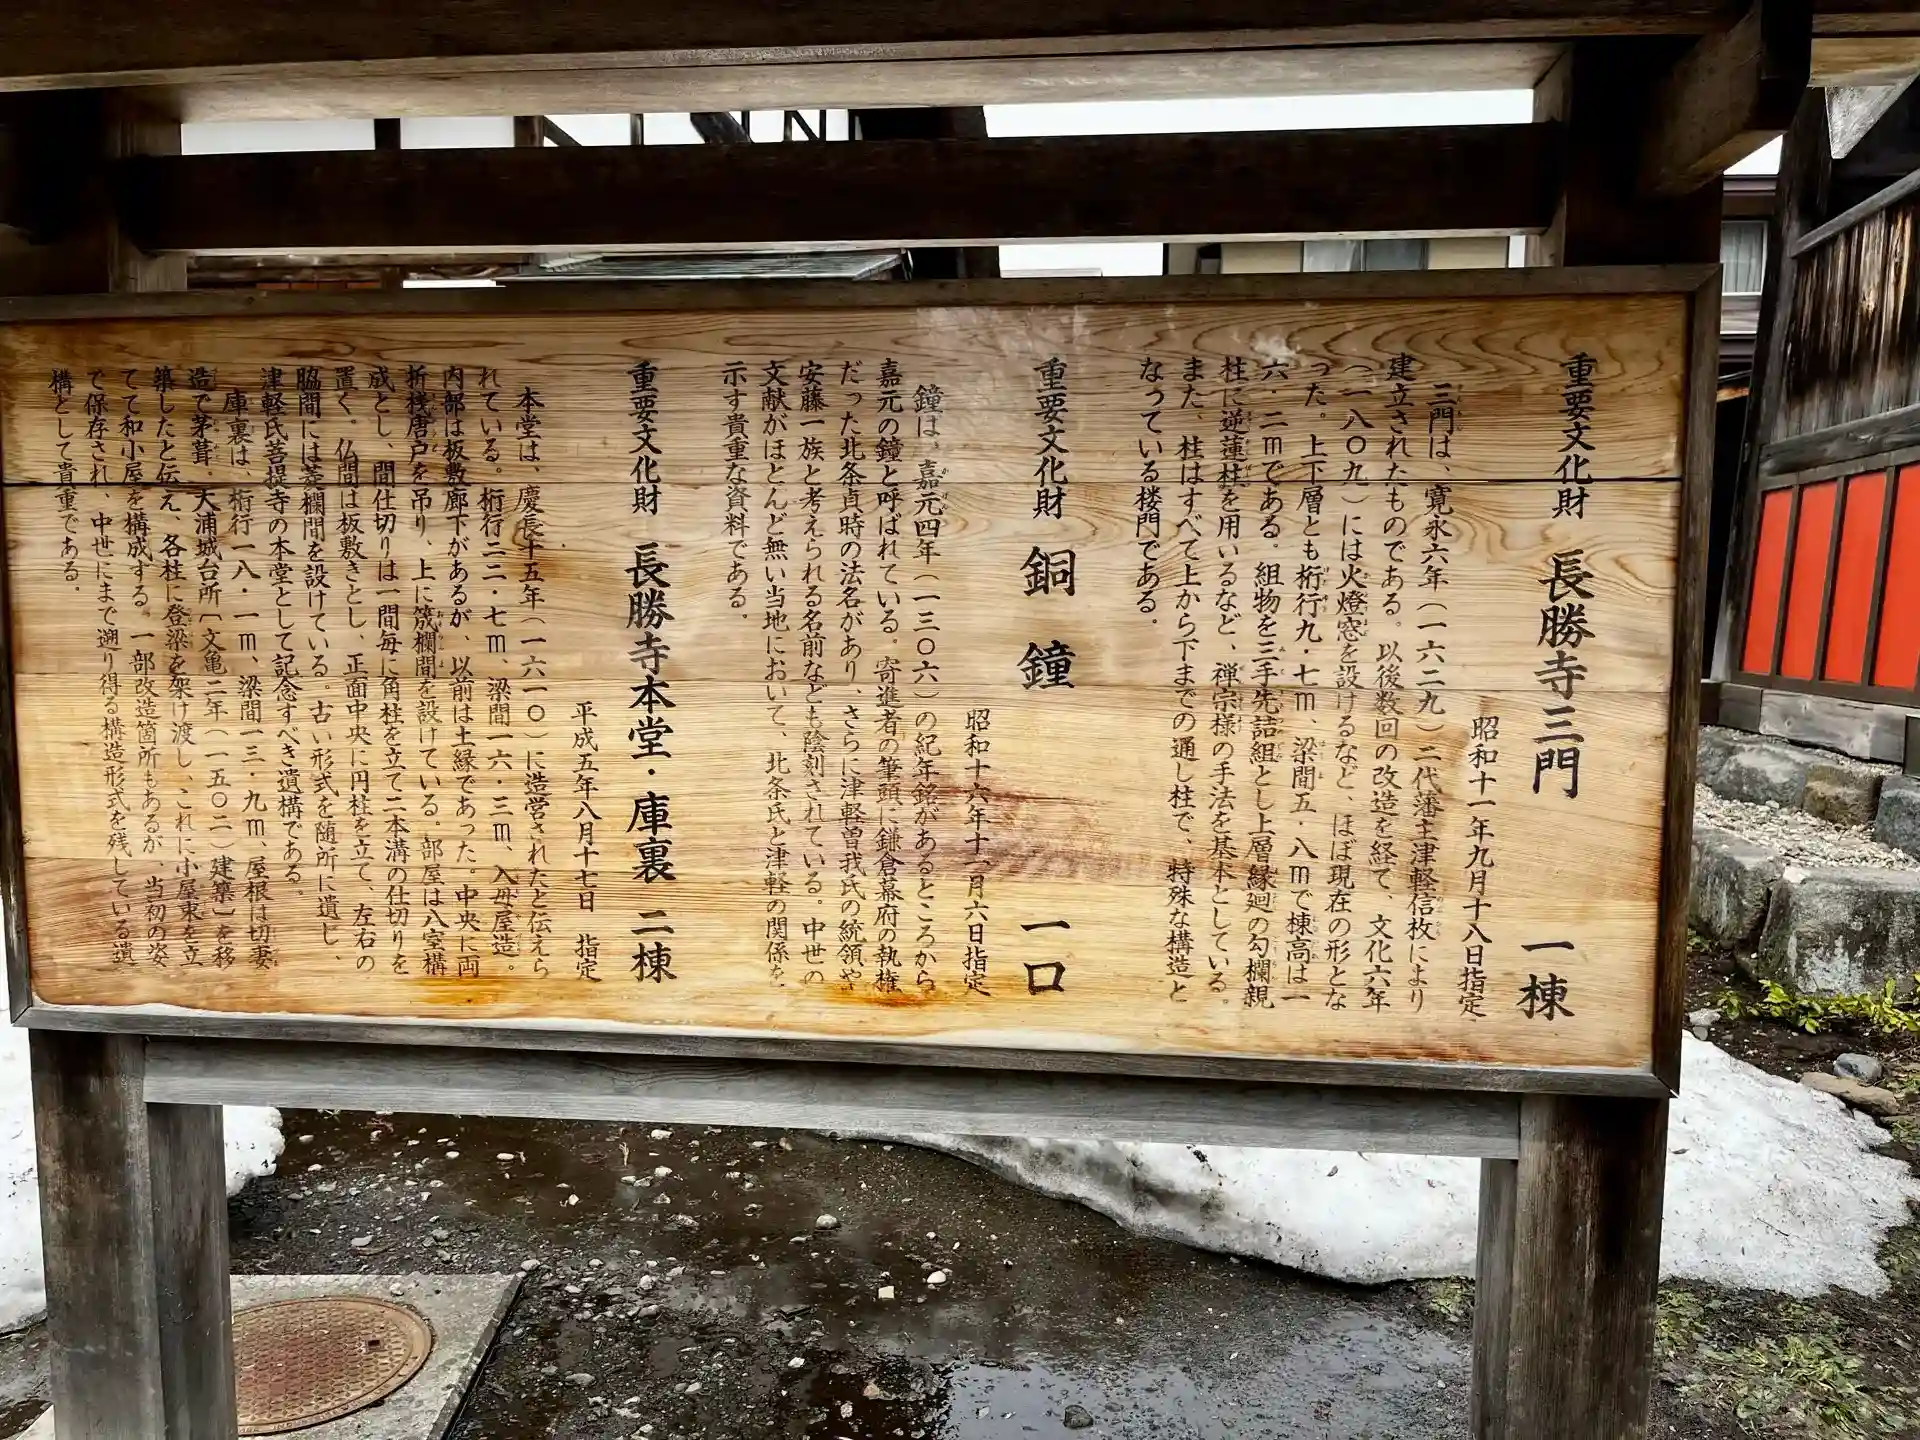 重要文化財　長勝寺三門　一棟
昭和十一年九月十八日指定
三門は、寛永六年（一六二九）二代藩主津軽信枚により
建立されたものである。以後数回の改造を経て、文化六年
（一八〇九）には火燈窓を設けるなど、ほぼ現在の形とな
った。上下層とも桁行九・七ｍ、梁間五・八ｍで棟高は一
六・二ｍである。組物を三手先詰組とし上層縁廻の勾欄親
柱に逆蓮柱を用いるなど、禅宗様の手法を基本としている。
また、柱はすべて上から下までの通し柱で、特殊な構造と
なっている楼門である。
重要文化財　銅鐘　一口
昭和十六年十一月六日指定
鐘は、嘉元四年（一三〇六）の紀年銘があるところから
嘉元の鐘と呼ばれている。寄進者の筆頭に鎌倉幕府の執権
だった北条貞時の法名があり、さらに津軽曽我氏の統領や
安藤一族と考えられる名前なども陰刻されている。中世の
文献がほとんど無い当地において、北条氏と津軽の関係を
示す貴重な資料である。
重要文化財　長勝寺本堂・庫裏　二棟
平成五年八月十七日　指定
本堂は、慶長十五年（一六一〇）に造営されたと伝えら
れている。桁行二二・七ｍ、梁間一六・三ｍ、入母屋造。
内部は板敷廊下があるが、以前は土縁であった。中央に両
折桟唐戸を吊り、上に筬欄間を設けている。部屋は八室構
成とし、間仕切りは一間毎に角柱を立て二本溝の仕切りを
置く。仏間は板敷きとし、正面中央に円柱を立て、左右の
脇間には菱欄間を設けている。古い形式を随所に遺し、
津軽氏菩提寺の本堂として記念すべき遺構である。
庫裏は、桁行一八・一ｍ、梁間一三・九ｍ、屋根は切妻
造で茅葺。大浦城台所〔文亀二年（一五〇二）建築〕を移
築したと伝え、各柱に登梁を架け渡し、これに小屋束を立
てて和小屋を構成する。一部改造箇所もあるが、当初の姿
で保存され、中世にまで遡り得る構造形式を残している遺
構として貴重である。